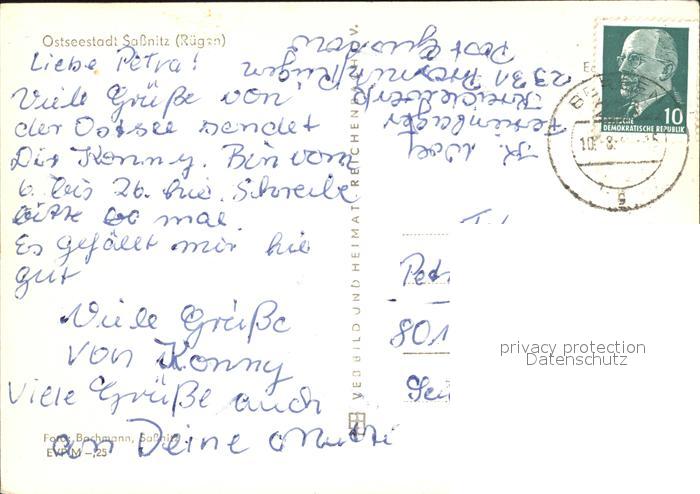 Ostseestadt Saßnitz (Rügen)
Liebe Petra!
Viele Grüße von
der Ostsee sendet
Dir Konny. Bin vom
6. bis 26. hie. Schreibe
bitte mal.
Es gefällt mir hie
gut
Viele Grüße
von Konny
Viele Grüße auch
an Deine Mutti
Foto: Bachmann, Saßnitz
EVP M -,25
VEB BILD UND HEIMAT REICHENBACH I. V.
Ferienlager
Kreidewerk
2331
Rügen
Post
10
DEUTSCHE
DEMOKRATISCHE REPUBLIK
Pet
801
privacy protection
Datenschutz